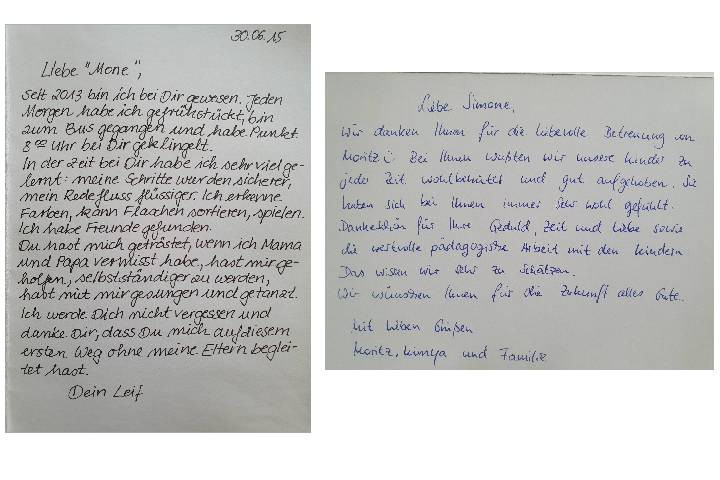 30.06.15
Liebe "Mone",
Seit 2013 bin ich bei Dir gewesen. Jeden
Morgen habe ich gefrühstückt, bin
zum Bus gegangen und habe Punkt
8⁰⁰ Uhr bei Dir geklingelt.
In der Zeit bei Dir habe ich sehr viel ge-
lernt: meine Schritte wurden sicherer,
mein Redefluss flüssiger. Ich erkenne
Farben, kann Flaschen sortieren, spielen.
Ich habe Freunde gefunden.
Du hast mich getröstet, wenn ich Mama
und Papa vermisst habe, hast mir ge-
holfen, selbstständiger zu werden,
habt mit mir gesungen und getanzt.
Ich werde Dich nicht vergessen und
danke Dir, dass Du mich auf diesem
ersten Weg ohne meine Eltern beglei-
tet hast.
Dein Leif
Liebe Simone,
wir danken Ihnen für die liebevolle Betreuung von
Moritz. Bei Ihnen wußten wir unsere Kinder zu
jeder Zeit wohlbehütet und gut aufgehoben. Sie
haben sich bei Ihnen immer sehr wohl gefühlt.
Dankeschön für Ihre Geduld, Zeit und Liebe sowie
die wertvolle pädagogische Arbeit mit den Kindern
Das wissen wir sehr zu schätzen.
Wir wünschen Ihnen für die Zukunft alles Gute.
Mit lieben Grüßen
Moritz, und Familie